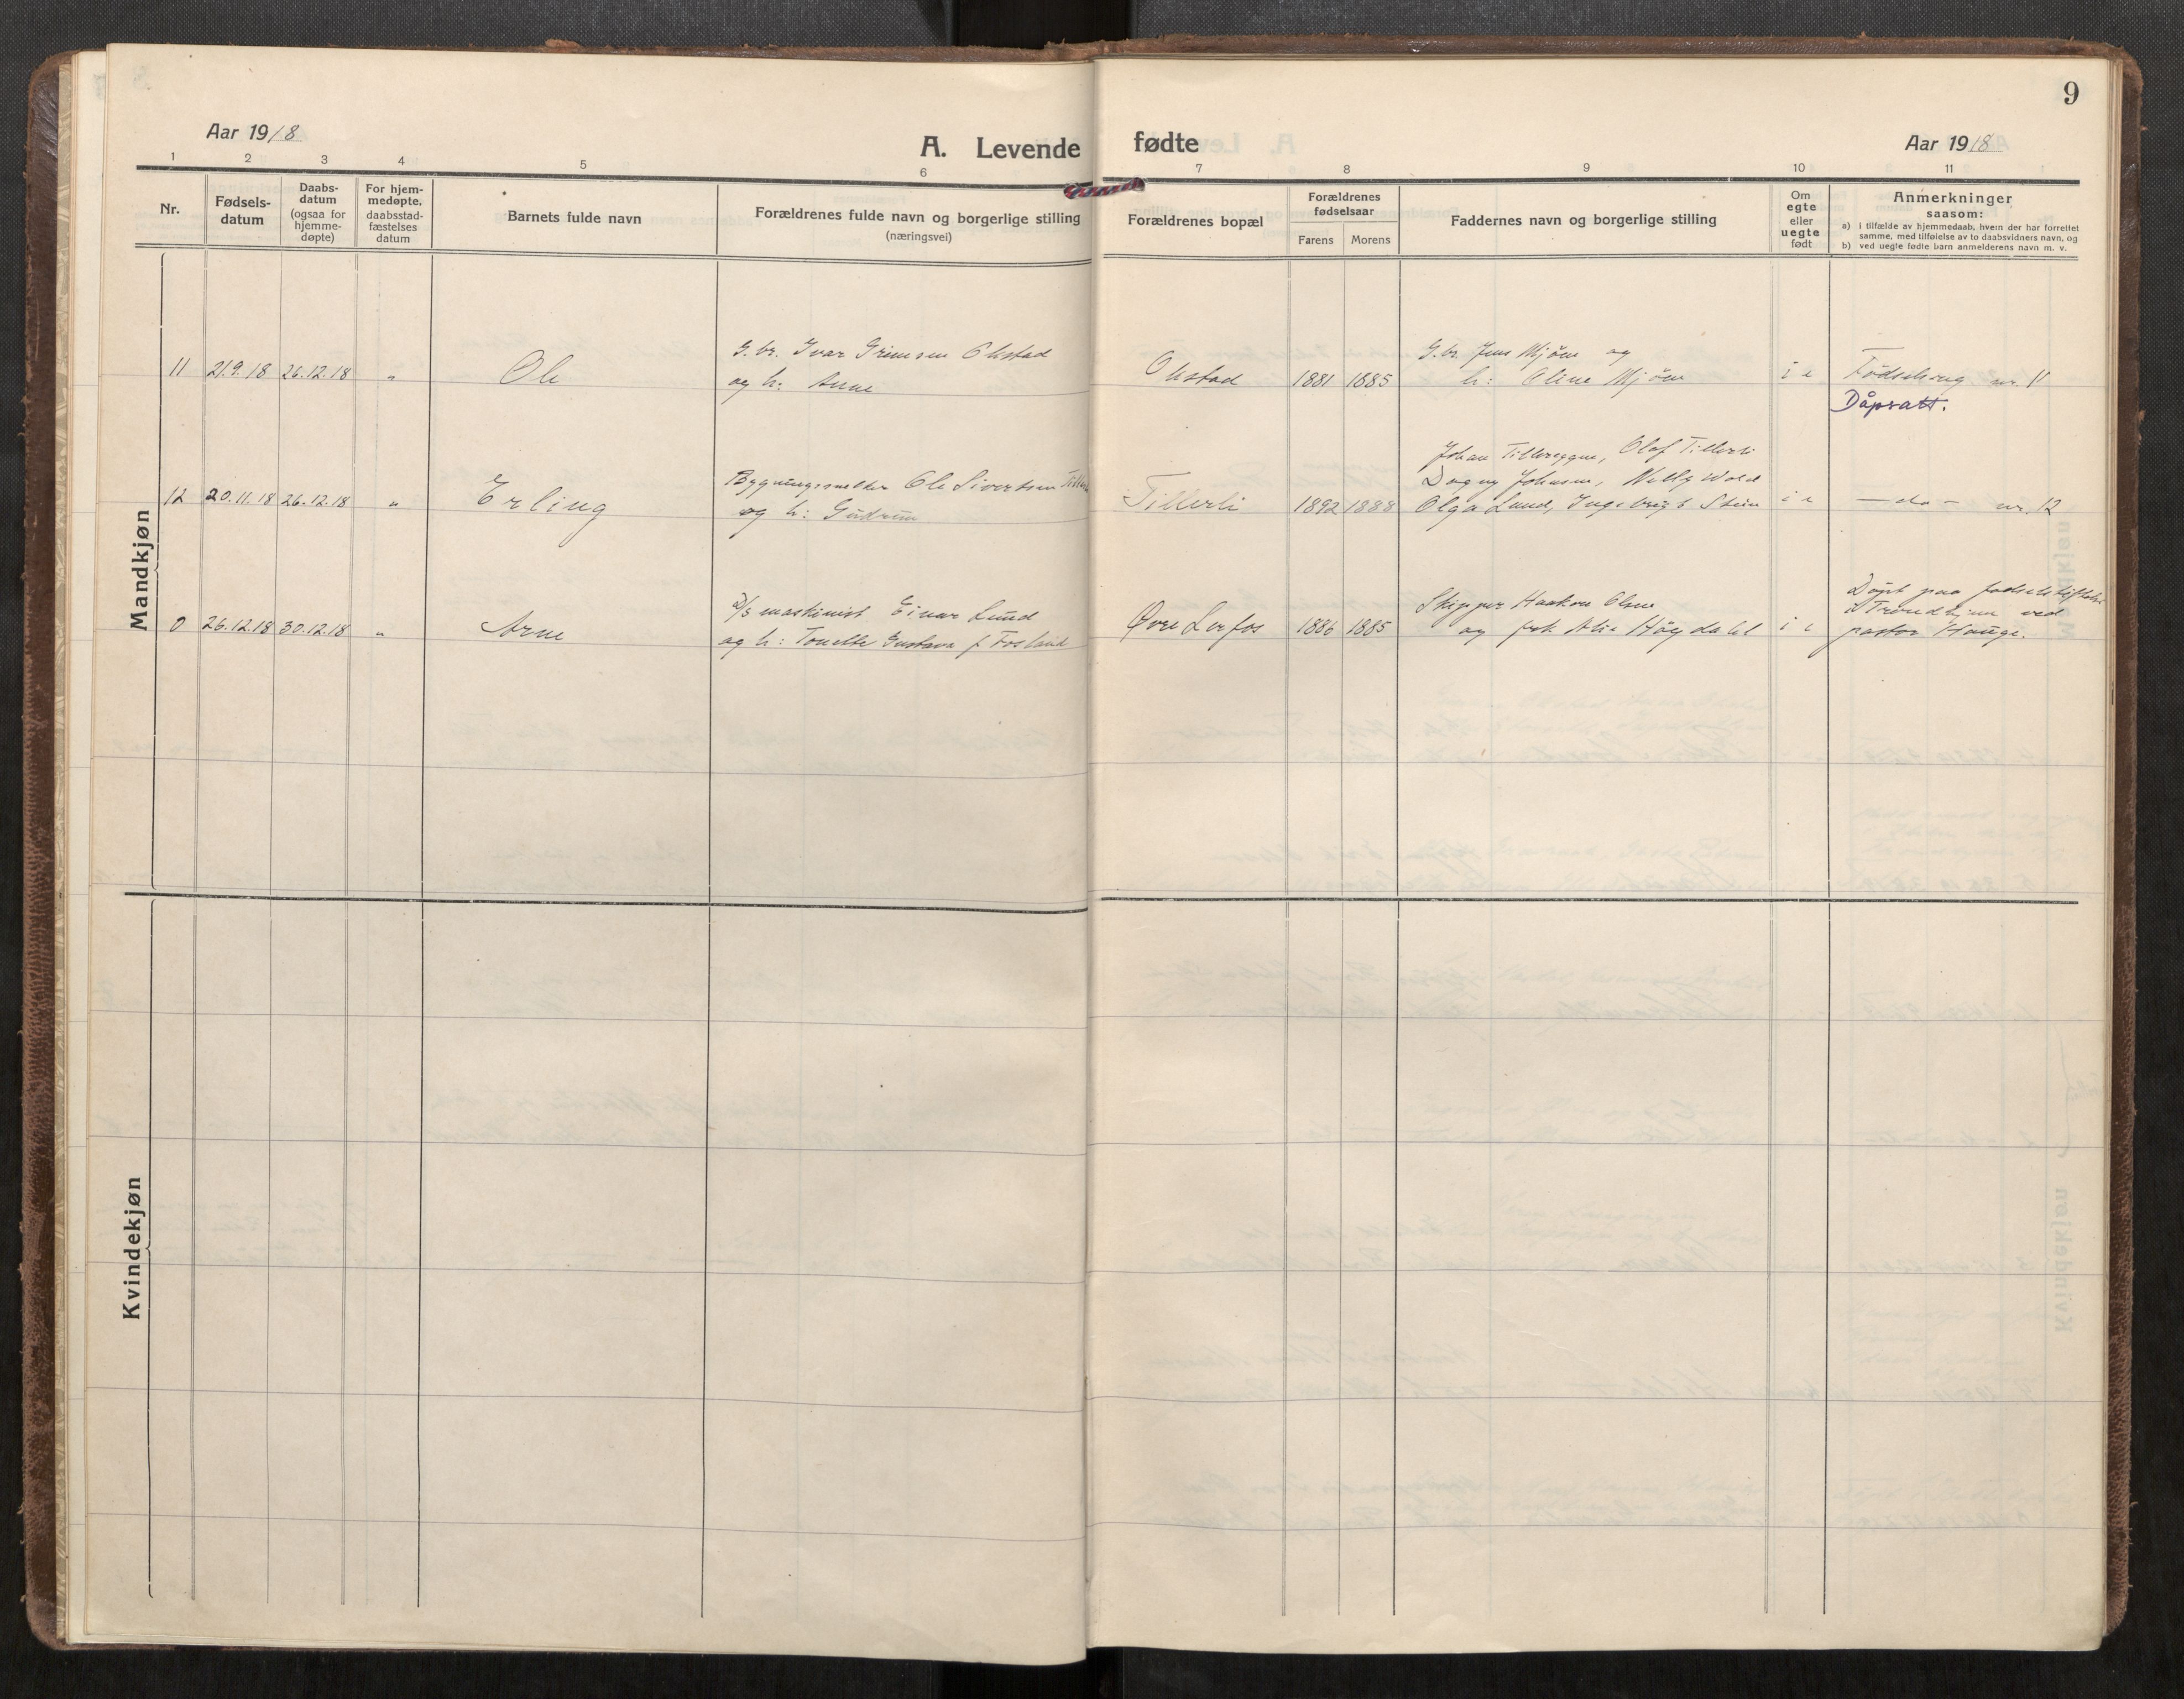 9
Aar 1918
A. Levende fødte
Aar 1918
1 2 3 4 5 6 7 8 9 10 11
Nr.
Fødsels-
datum
Daabs-
datum
(ogsaa for
hjemme-
døpte)
For hjem-
medøpte,
daabsstad-
fæstelses
datum
Barnets fulde navn
Forældrenes fulde navn og borgerlige stilling
(næringsvei)
Forældrenes bopæl
Forældrenes
fødselsaar
Farens Morens
Faddernes navn og borgerlige stilling
Om
egte
eller
uegte
født
Anmerkninger
saasom:
a) i tilfælde av hjemmedaab, hvem der har forrettet
samme, med tilføielse av to daabsvidners navn, og
b) ved uegte fødte barn anmelderens navn m. v.
Mandkjøn
G.br. Ivar Grimsen Okstad
og h: Anne
11 21.9.18 26.12.18 " Ole
Okstad 1881 1885
G.br. Jens Mjøen og
h: Oline Mjøen
i e
Fødselsreg nr. 11
Dåpsatt.
Bygningssnekker Ole Sivertsen
og h: Gudrun
12 20.11.18 26.12.18 " Erling
Tillerli 1892 1888
Johan Tillereggen, Olaf Tillerli
Dagny Johnsen, Nelly Wold
Olga Lund, Ingebrigt Stein
i e
— do — nr. 12
D/s maskinist Einar Lund
og h: Tonette Gustava f. Fosland
0 26.12.18 30.12.18 " Arne
Øvre Lerfos 1886 1885
Skipper Haakon Olsen
og frk. Høydahl
i e
Døpt paa fødselsstiftelsen
i Trondhjem ved
pastor Hauge.
Kvindekjøn